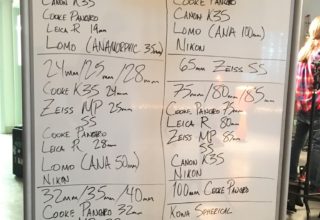 CANON K35
COOKE PANCRO
LEICA R 19mm
LOMO (ANAMORPHIC 35mm)
24mm/25mm/28mm
COOKE K35 24mm
ZEISS MP 25mm
COOKE PANCRO
LEICA R 28mm
LOMO (ANA 50mm)
NIKON
32mm/35mm/40mm
COOKE PANCRO 32mm
COOKE PANCRO
CANON K35
LOMO (ANA 100mm)
NIKON
65mm ZEISS SS
75mm/80mm/85mm
COOKE PANCRO 75mm
LEICA R 80mm
ZEISS MP 85mm
SS
CANON K35
NIKON
100mm COOKE PANCRO
KOWA SPHERICAL